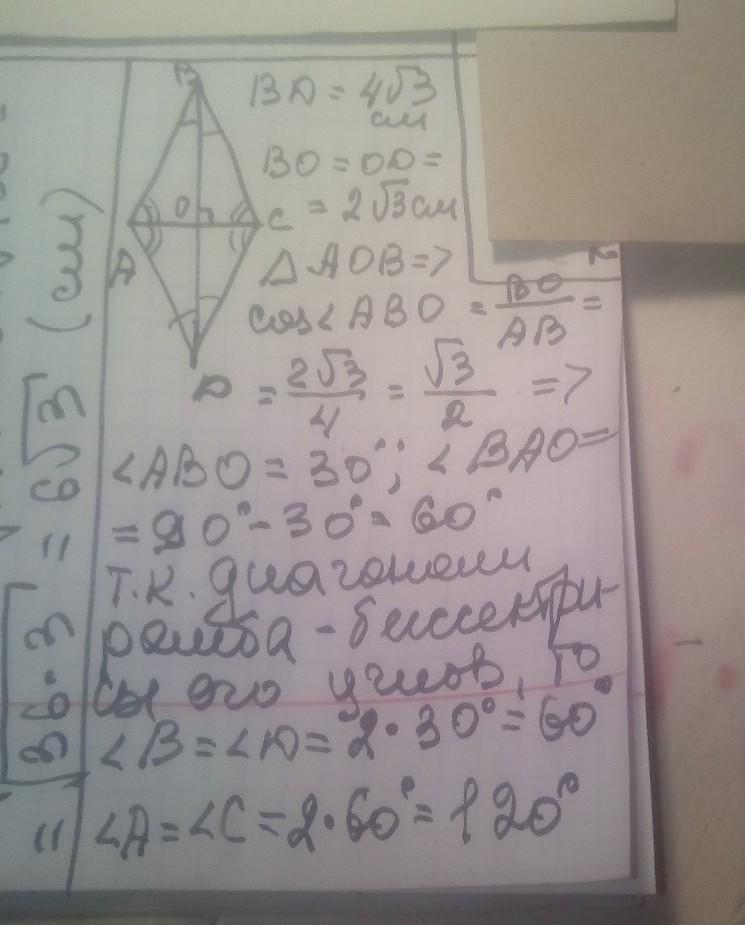 B
A
O
C
D
BD = 4√3
см
BO = OD =
= 2√3 см
△ AOB =>
cos∠ABO = BO/AB =
= 2√3/4 = √3/2 =>
∠ABO = 30°; ∠BAO =
= 90° - 30° = 60°
т.к. диагонали
ромба - биссектри-
сы его углов, то
∠B = ∠D = 2·30° = 60°
∠A = ∠C = 2·60° = 120°
= √36·3 = 6√3 (см)